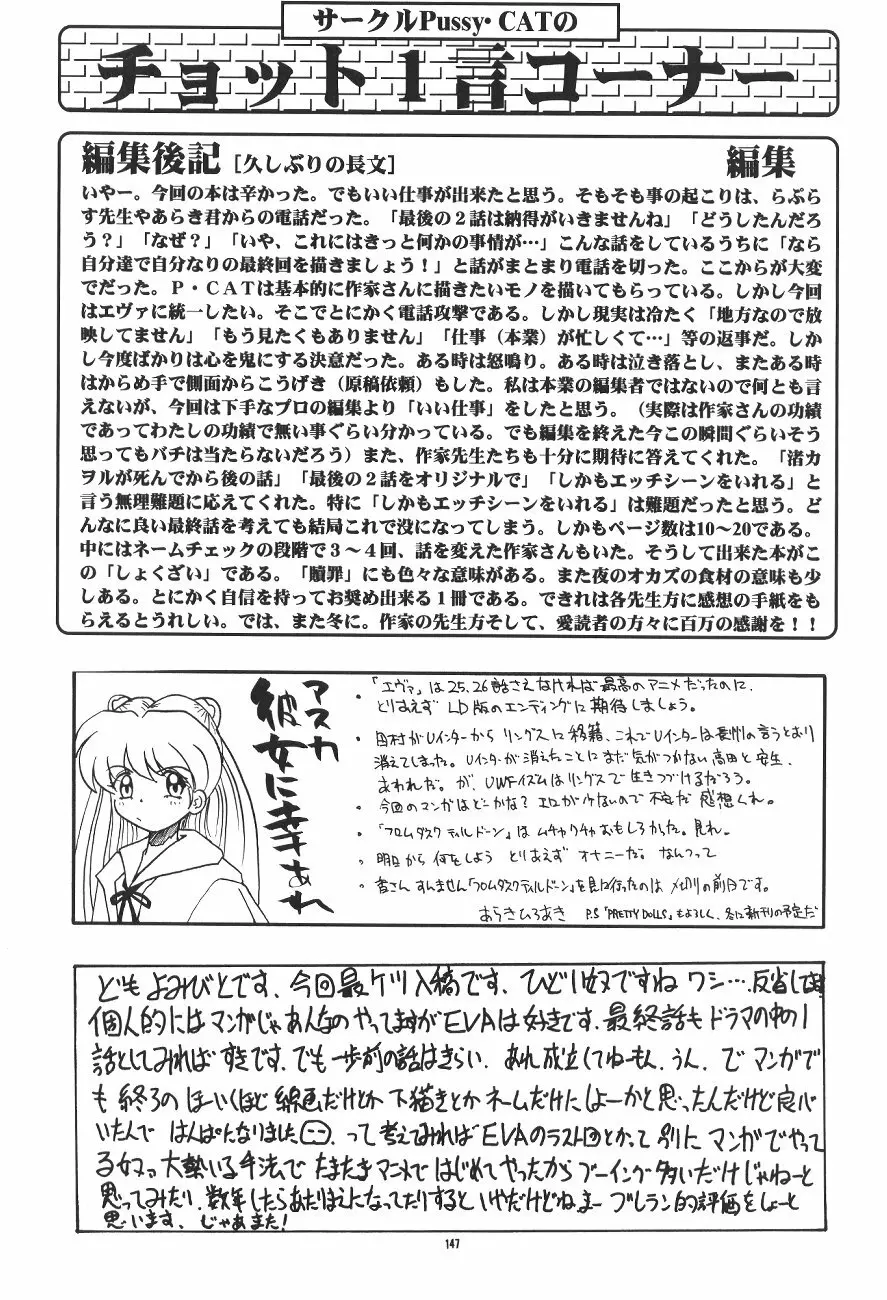 サークルPussy・CATの
チョット1言コーナー
編集後記［久しぶりの長文］ 編集
いやー。今回の本は辛かった。でもいい仕事が出来たと思う。そもそも事の起こりは、らぷら
す先生やあらき君からの電話だった。「最後の２話は納得がいきませんね」「どうしたんだろ
う？」「なぜ？」「いや、これにはきっと何かの事情が…」こんな話をしているうちに「なら
自分達で自分なりの最終回を描きましょう！」と話がまとまり電話を切った。ここからが大変
でだった。Ｐ・ＣＡＴは基本的に作家さんに描きたいモノを描いてもらっている。しかし今回
はエヴァに統一したい。そこでとにかく電話攻撃である。しかし現実は冷たく「地方なので放
映してません」「もう見たくもありません」「仕事（本業）が忙しくて…」等の返事だ。しか
し今度ばかりは心を鬼にする決意だった。ある時は怒鳴り。ある時は泣き落とし、またある時
はからめ手で側面からこうげき（原稿依頼）もした。私は本業の編集者ではないので何とも言
えないが、今回は下手なプロの編集より「いい仕事」をしたと思う。（実際は作家さんの功績
であってわたしの功績で無い事ぐらい分かっている。でも編集を終えた今この瞬間ぐらいそう
思ってもバチは当たらないだろう）また、作家先生たちも十分に期待に答えてくれた。「渚カ
ヲルが死んでから後の話」「最後の２話をオリジナルで」「しかもエッチシーンをいれる」と
言う無理難題に応えてくれた。特に「しかもエッチシーンをいれる」は難題だったと思う。ど
んなに良い最終話を考えても結局これで没になってしまう。しかもページ数は10～20である。
中にはネームチェックの段階で３～４回、話を変えた作家さんもいた。そうして出来た本がこ
の「しょくざい」である。「贖罪」にも色々な意味がある。また夜のオカズの食材の意味も少
しある。とにかく自信を持ってお奨め出来る１冊である。できれは各先生方に感想の手紙をも
らえるとうれしい。では、また冬に。作家の先生方そして、愛読者の方々に百万の感謝を！！
アスカ
彼女に幸あれ
・「エヴァ」は25、26話さえなければ最高のアニメだったのに、
とりあえず LD版のエンディングに期待しましょう。
・田村がUインターから リングスに移籍、これでUインターは長州の言うとおり
消えてしまった。Uインターが消えたことにまだ気がつかない高田と安生、
あわれだ。が、UWFイズムはリングスで生きつづけるだろう。
・今回のマンガはどーかな？エロが少ないので不安だ 感想くれ。
・「フロムダスクティルドーン」は ムチャクチャおもしろかった。見れ。
・明日から 何をしよう とりあえず オナニーだ。なんつって
・皆さん すんません「フロムダスクティルドーン」を見に行ったのは〆切りの前日です。
あらきひろあき P.S「PRETTY DOLLS」もよろしく、冬に新刊の予定だ
どもよみびとです、今回最ケツ入稿です、ひどい奴ですね ワシ…反省してます
個人的にはマンガじゃあんなのやってますがEVAは好きです、最終話もドラマの中の1
話としてみればすきです、でも一歩前の話はきらい、あれ成立してねーもん、うん、で マンガで
も 終ろの ほーいくほど 線画だけとか 下描きとか ネームだけにしよーかと思ったんだけど良心
いたんで はんぱになりました、って 考えてみればEVAのラスト回とかって 別に マンガでやって
る奴って 大勢いる手法で たまたまアニメで はじめてやったから ブーイング多いだけじゃねーと
思ってみたり、数年したらあたりまえになってたりすると いやだけどねまー ブレラン的評価をしよーと
思います、じゃあまた！
147